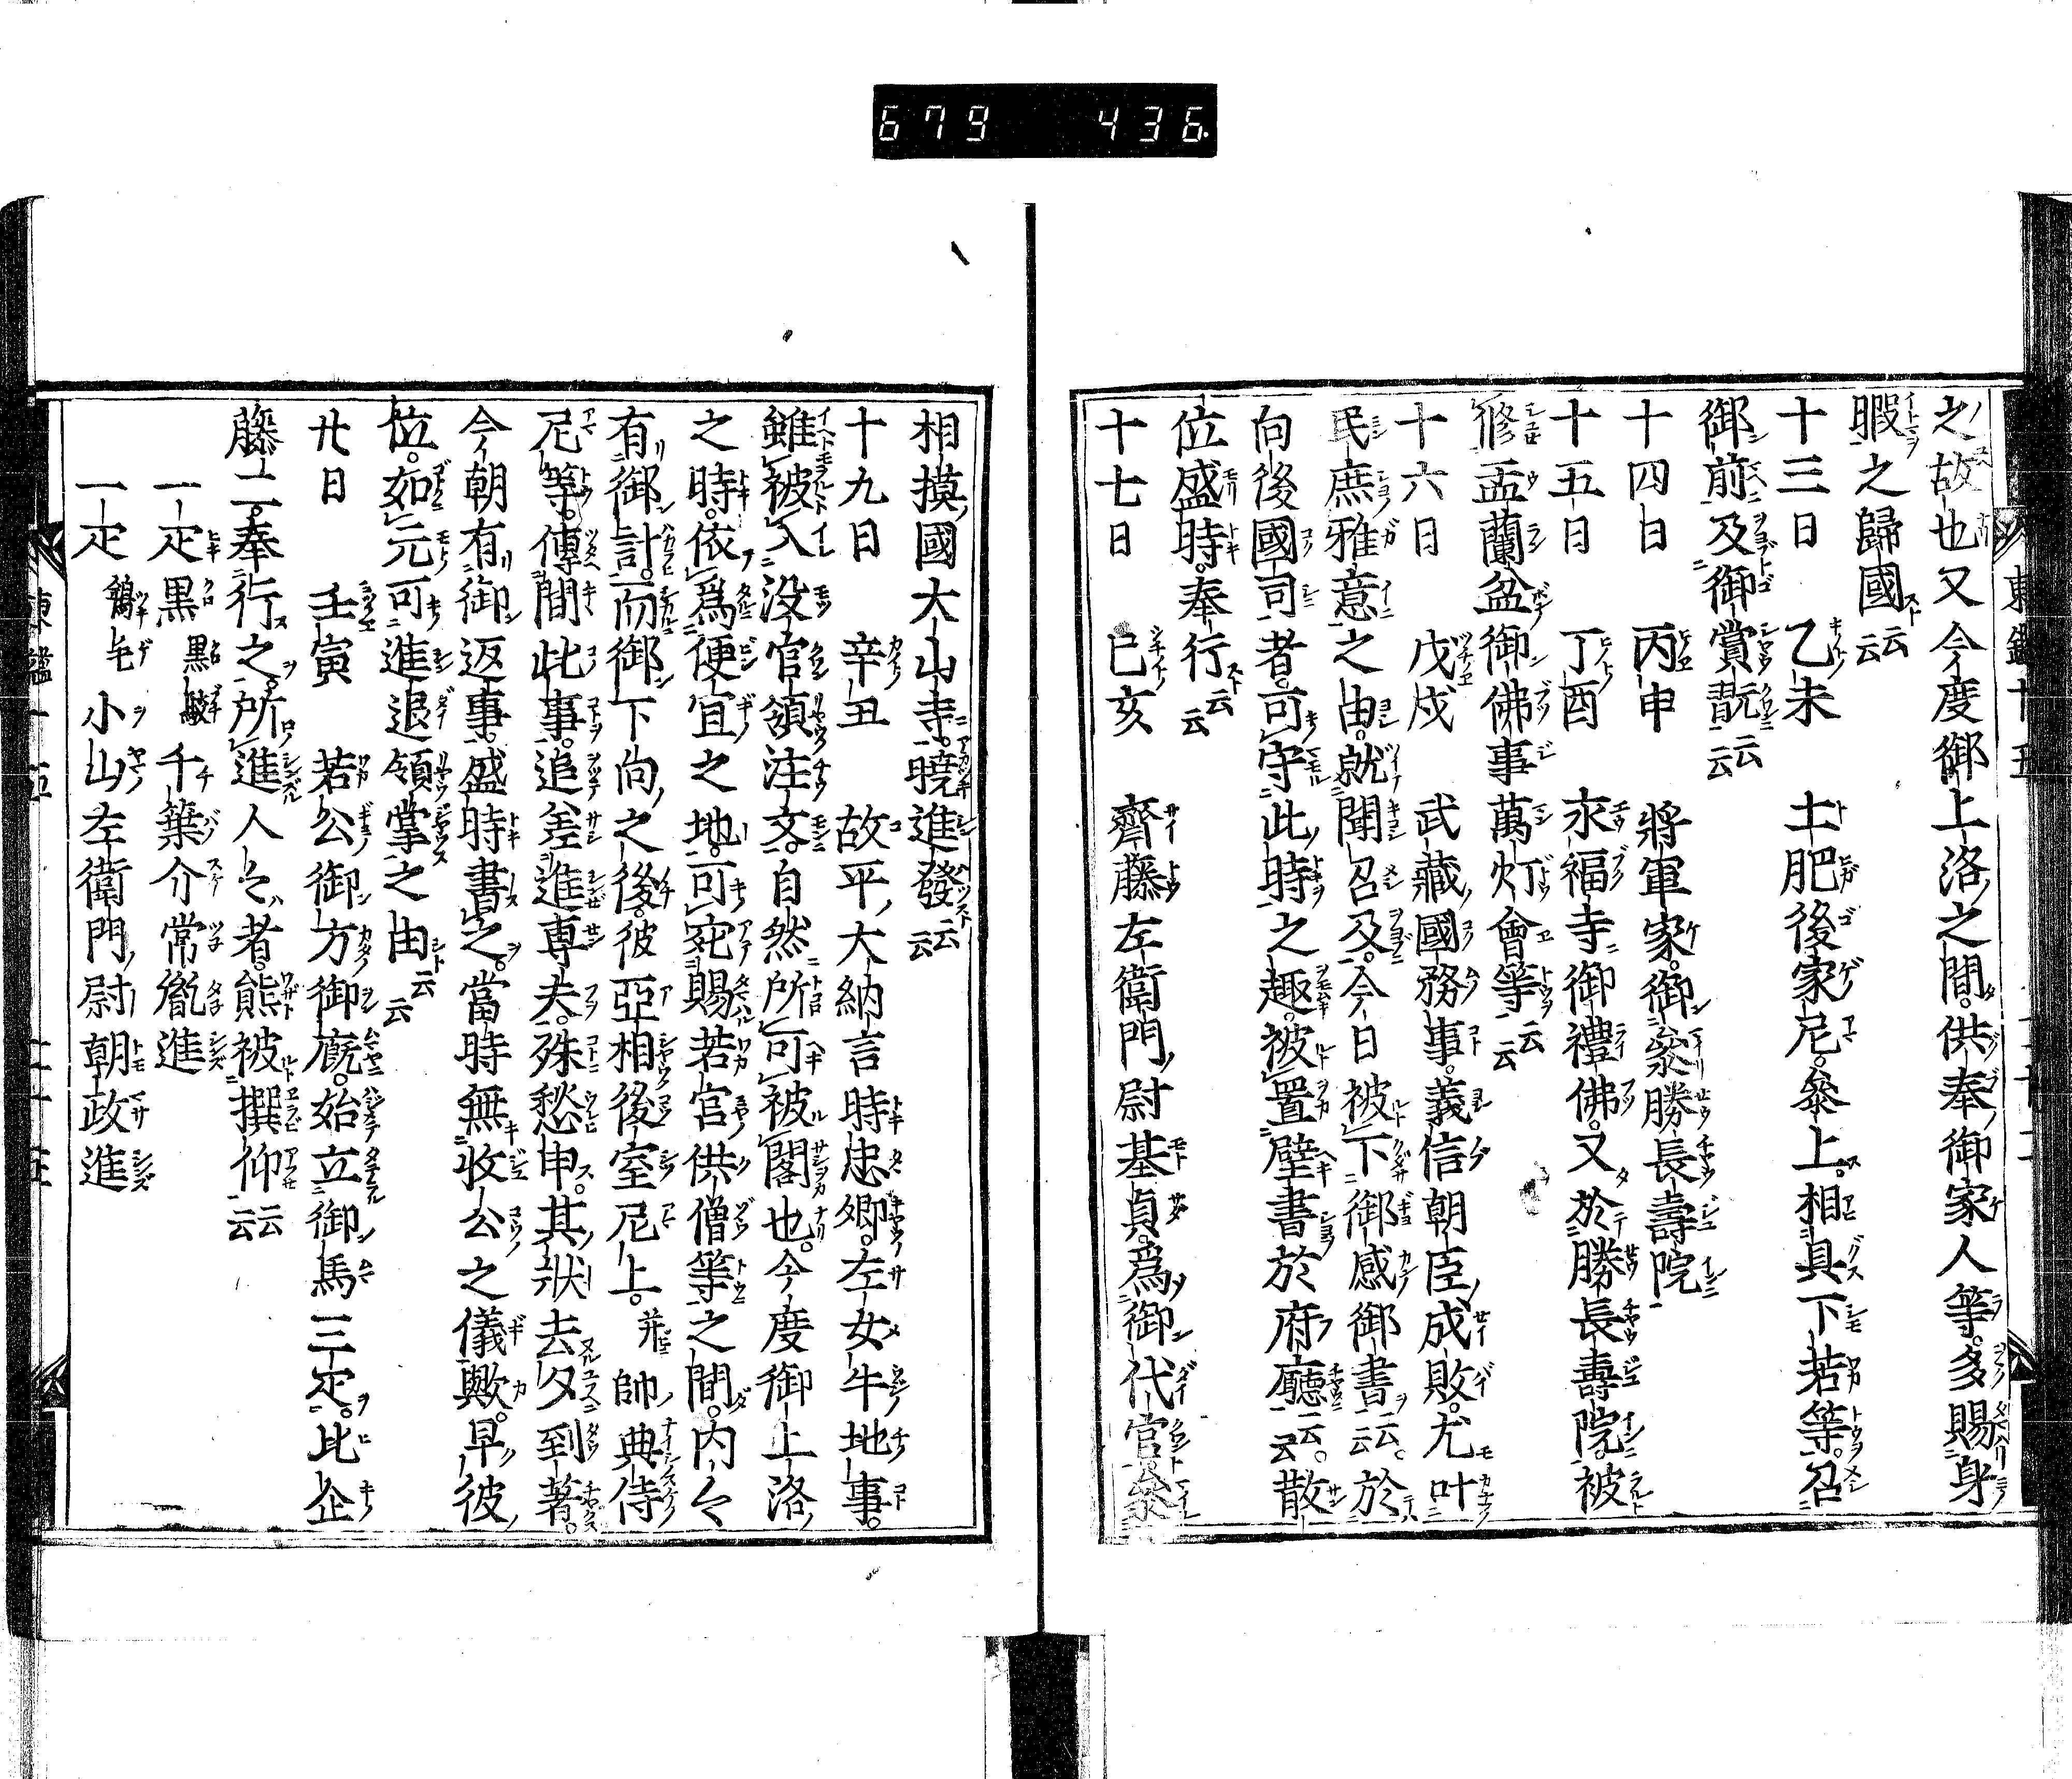 679 436
之故也又今度御上洛之間。供奉御家人等。多賜身
暇之歸國云云
十三日 乙未 土肥後家尼。參上。相具下若等。召
御前及御賞翫云云
十四日 丙申 將軍家。御參勝長壽院
十五日 丁酉 永福寺御禮佛。又於勝長壽院。被
修盂蘭盆御佛事萬灯會等云云
十六日 戊戌 武藏國務事。義信朝臣成敗。尤叶
民庶雅意之由。就聞召及。今日被下御感御書云云。於
向後國司者。可守此時之趣。被置壁書於府廳云云。散
位盛時。奉行云云
十七日 己亥 齊藤左衛門尉基貞。爲御代官參
相摸國大山寺。曉進發云云
十九日 辛丑 故平大納言時忠卿。左女牛地事。
雖被入没官領注文。自然所可被閣也。今度御上洛
之時。依爲便宜之地。可宛賜若宮供僧等之間。内々
有御計。而御下向之後。彼亞相後室尼上。并帥典侍
尼等。傳聞此事。追差進専夫。殊愁申。其状去夕到著。
今朝有御返事。盛時書之。當時無收公之儀歟。早彼
位。如元可進退領掌之由云云
廿日 壬寅 若公御方御廐。始立御馬三疋。比企
藤二。奉行之。所進人々者。態被撰仰云云
一疋黒 黒駮 千葉介常胤進
一疋 鴾毛 小山左衛門尉朝政進